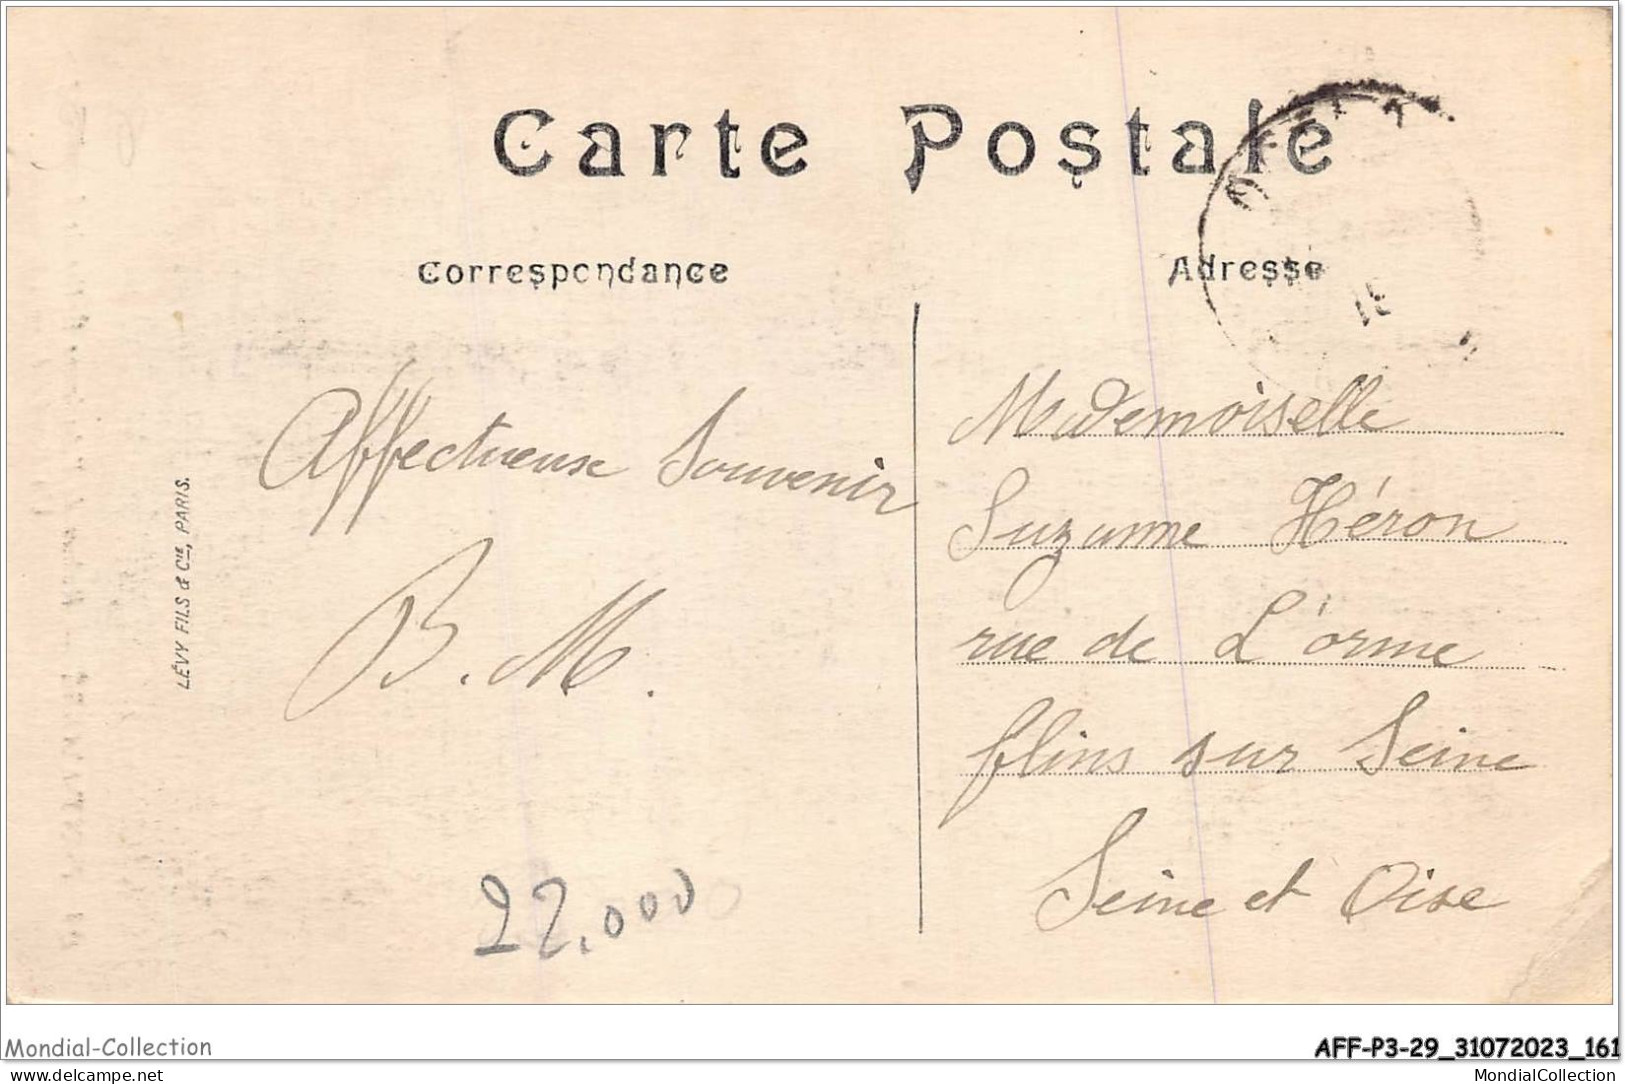 Carte Postale
Correspondance
Adresse
Affectueuse Souvenir
B. M.
22.000
LÉVY FILS & Cie, PARIS.
Mademoiselle
Suzanne Héron
rue de L'orme
flins sur Seine
Seine et Oise
Mondial-Collection
AFF-P3-29_31072023_161
www.delcampe.net
MondialCollection